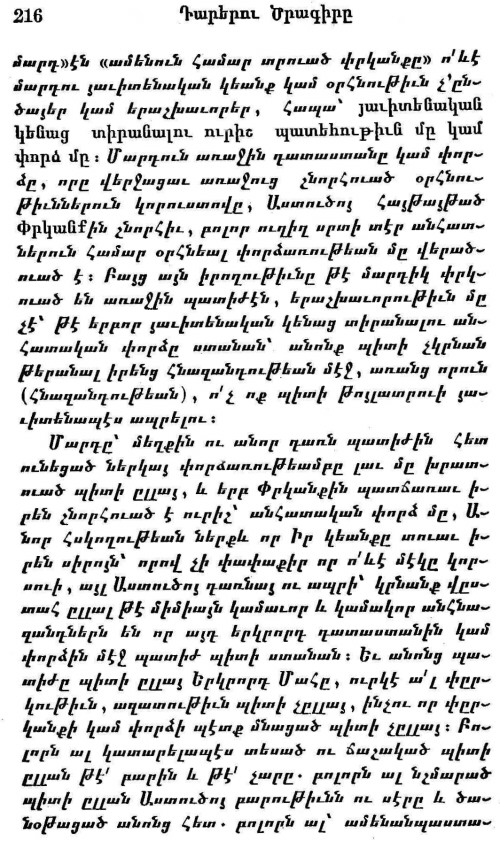 216 Դարերու Ծրագիրը
մարդ»էն «ամենուն համար տրուած փրկանքը» ո՛ևէ
մարդու յաւիտենական կեանք կամ օրհնութիւն չ՚ըն-
ծայեր կամ երաշխաւորեր, հապա՝ յաւիտենական
կենաց տիրանալու ուրիշ պատեհութիւն մը կամ
փորձ մը։ Մարդուն առաջին դատաստանը կամ փոր-
ձը, որը վերջացաւ առաջուց շնորհուած օրհնու-
թիւններուն կորուստովը, Աստուծոյ հայթայթած
Փրկանքին շնորհիւ, բոլոր ուղիղ սրտի տէր անհատ-
ներուն համար օրհնեալ փորձառութեան մը վերած-
ուած է։ Բայց այն իրողութիւնը թէ մարդիկ փրկ-
ուած են առաջին պատիժէն, երաշխաւորութիւն մը
չէ՝ թէ երբոր յաւիտենական կենաց տիրանալու ան-
հատական փորձը ստանան՝ անոնք պիտի չկրնան
թերանալ իրենց հնազանդութեան մէջ, առանց որուն
(հնազանդութեան), ո՛չ ոք պիտի թոյլատրուի յա-
ւիտենապէս ապրելու։
Մարդը՝ մեղքին ու անոր դառն պատիժին հետ
ունեցած ներկայ փորձառութեամբը լաւ մը խրատ-
ուած պիտի ըլլայ, և երբ Փրկանքին պատճառաւ ի-
րեն շնորհուած է ուրիշ՝ անհատական փորձ մը, Ա-
նոր հսկողութեան ներքև որ Իր կեանքը տուաւ ի-
րեն սիրոյն՝ որով չի փափաքիր որ ո՛ևէ մէկը կոր-
սուի, այլ Աստուծոյ դառնայ ու ապրի՝ կրնանք վըս-
տահ ըլլալ թէ միմիայն կամաւոր և կամակոր անհնա-
զանդներն են որ այդ երկրորդ դատաստանին կամ
փորձին մէջ պատիժ պիտի ստանան։ Եւ անոնց պա-
տիժը պիտի ըլլայ Երկրորդ Մահը, ուրկէ ա՛լ փըր-
կութիւն, ազատութիւն պիտի չըլլայ, ինչու որ փըր-
կանքի կամ փորձի պէտք մնացած պիտի չըլլայ։ Բո-
լորն ալ կատարելապէս տեսած ու ճաշակած պիտի
ըլլան թէ՛ բարին և թէ՛ չարը. բոլորն ալ նշմարած
պիտի ըլլան Աստուծոյ բարութիւնն ու սէրը և ծա-
նօթացած անոնց հետ. բոլորն ալ՝ ամենանպաստա-